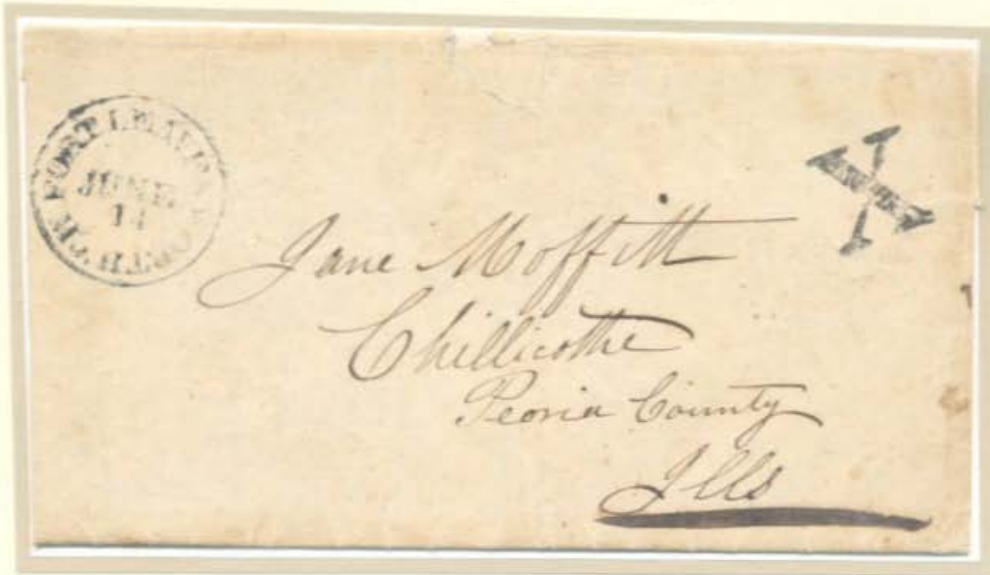 FORT LEAVENWORTH
JUNE
X
Jane Moffitt
Chillicothe
Peoria County
Ills